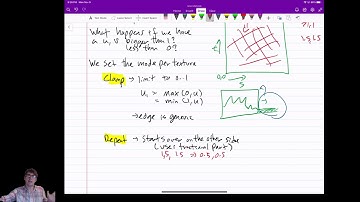 What happens if we have
a u, v bigger than 1?
less than 0?
We set the mode per texture
Clamp → limit to 0-1
u = max(0, u)
= min(0, u)
→ edge is generic
Repeat → starts over on the other side
(uses fractional part)
1.5, 1.5 ⇒ 0.5, 0.5
t
0,0
S